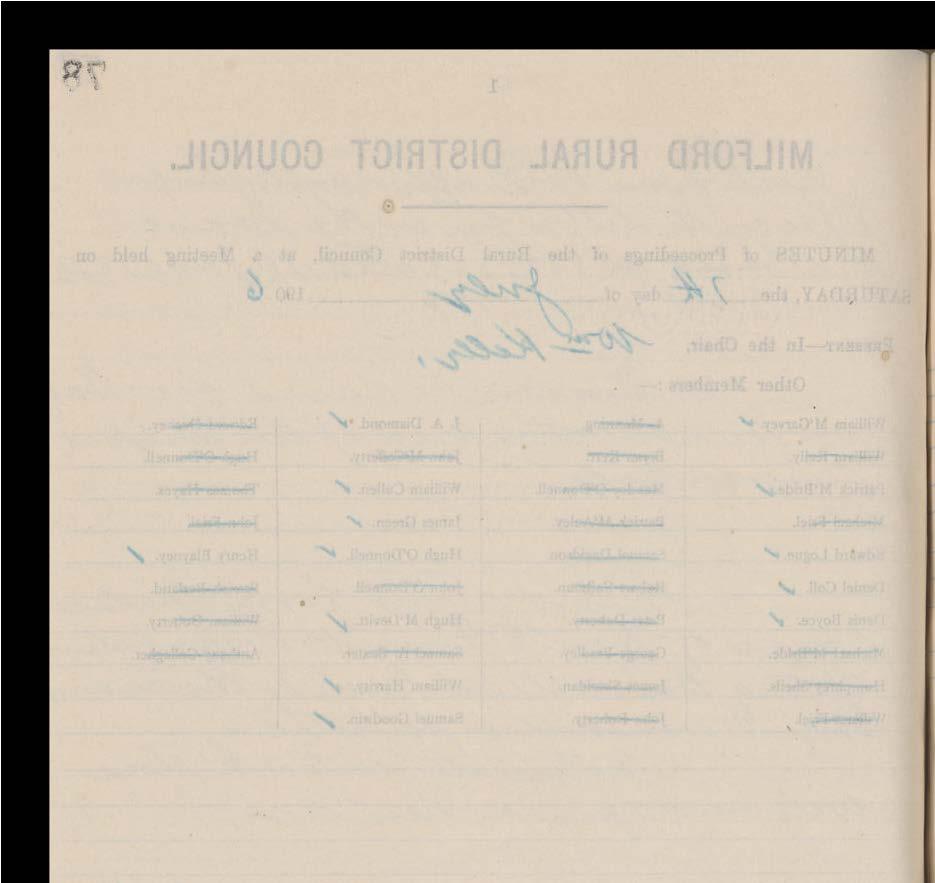 78
1
MILFORD RURAL DISTRICT COUNCIL.
MINUTES of Proceedings of the Rural District Council, at a Meeting held on
SATURDAY, the 7th day of July 190 6
PRESENT—In the Chair, Wm Kelly.
Other Members :—
William M'Garvey. A. Manning. J. A. Diamond.
William Kelly. Bryan Kerr. John M'Cafferty. Hugh O'Donnell.
Patrick M'Bride. O'Donnell. William Cullen. Thomas Hayes.
Michael Friel. Patrick M'Auley. James Green. John Friel.
Edward Logue. Samuel Davidson. Hugh O'Donnell. Henry Blayney.
Daniel Coll. Robert John O'Donnell.
Denis Boyce. Peter Doherty. Hugh M'Devitt. William Doherty.
Michael M'Bride. George Bradley. Samuel A. Anthony Gallagher.
Humphrey Sheils. James Sheridan. William Harrity.
William Friel. John Doherty. Samuel Goodwin.